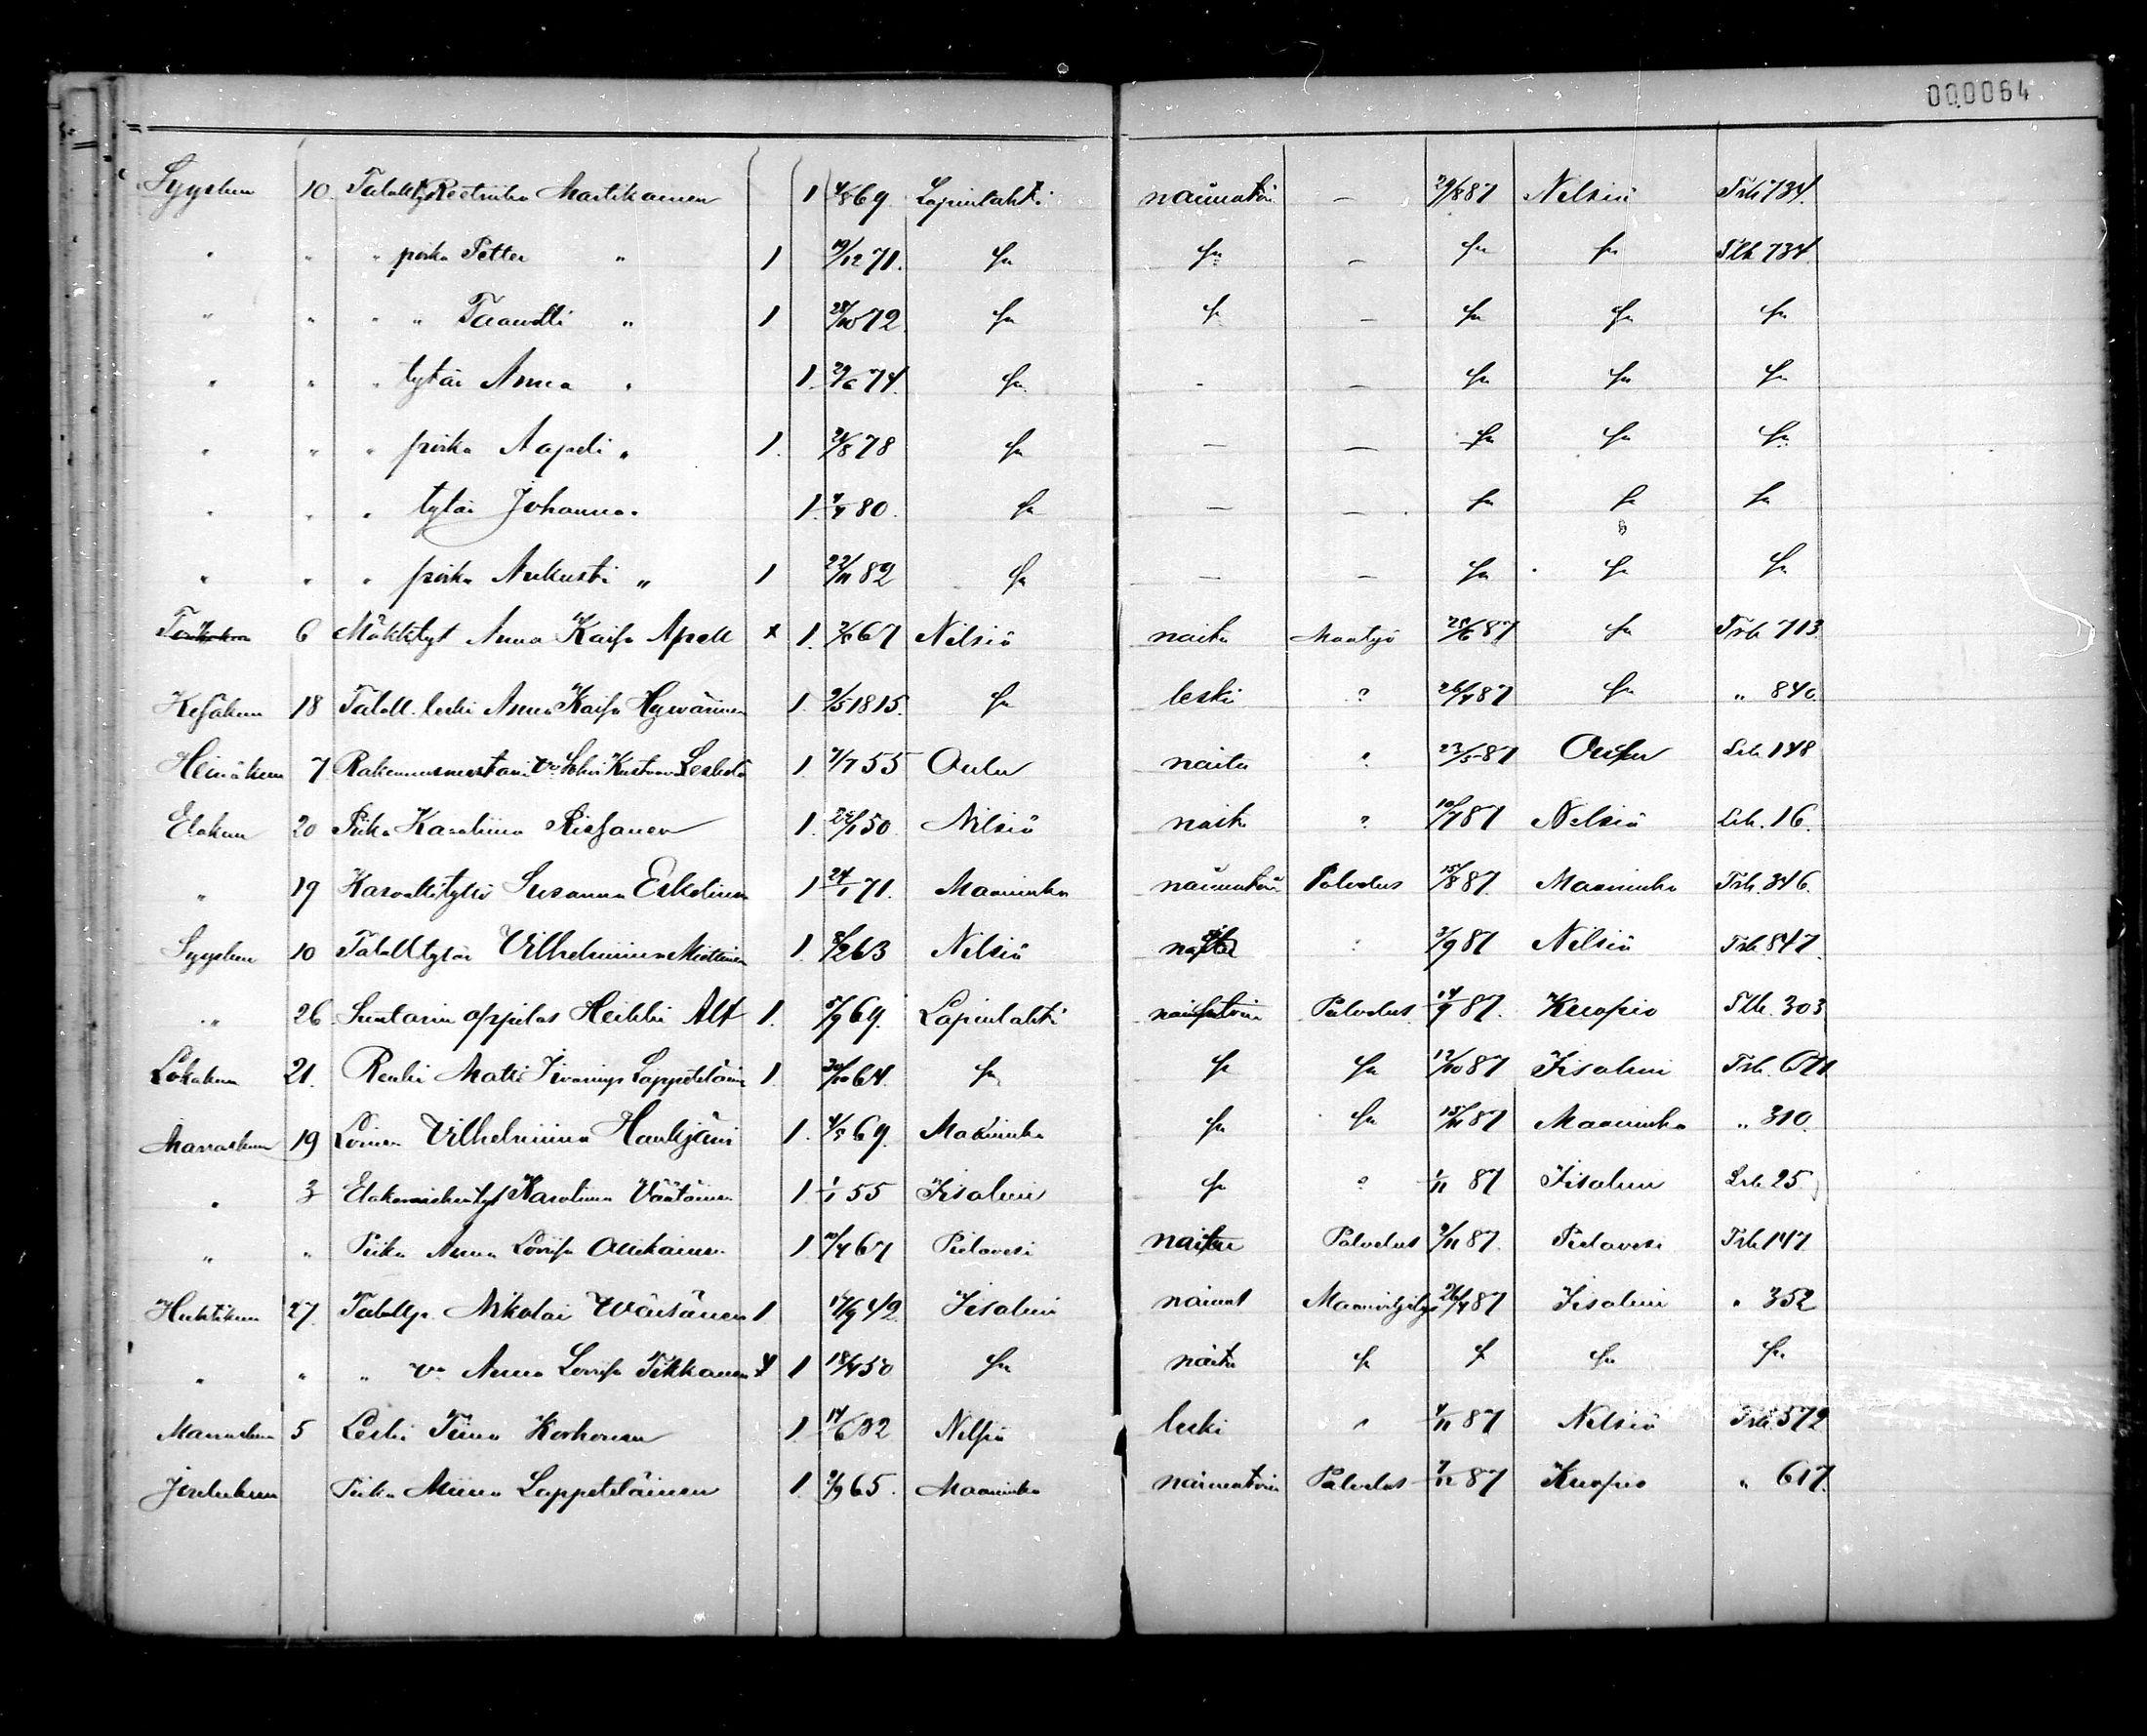 000064
Syyskuu 10. Talolltyt Reetriika Martikainen 1 4/8 69. Lapinlahti naimatoin – 29/8 87 Nilsiä Trk 734.
" " " poika Petter " 1 19/12 71. Sa Sa – Sa Sa Trk 734
" " " " Taavetti " 1 28/10 72 Sa Sa – Sa Sa Sa
" " " tytär Anna " 1. 29/6 74. Sa - – Sa Sa Sa
" " " poika Aapeli " 1. 24/8 78 Sa – – Sa Sa Sa
" " " tytär Johanna " 1. 4/4 80. Sa – – Sa Sa Sa
" " " poika Aukusti " 1 22/11 82 Sa – – Sa Sa Sa
6 Mökkityt Anna Kaisa Apell x 1. 2/8 67 Nilsiä naitu Maatyö 20/6 87 Sa Trk 713.
Kesäkuu 18 Taloll. leski Anna Kaisa Hyvärinen 1. 9/5 1815. Sa leski ? 26/4 87 Sa " 840.
Heinäkuu 7 Rakennusmestarin vo Sohvi Kustaava 1 7/7 55 Oulu naitu ? 23/5 87 Oulu Lrk 148
Elokuu 20 Piika Karoliina Rissanen 1. 24/1 50 Nilsiä naitu ? 10/7 87 Nilsiä Lrk. 16.
" 19 Kasvattityttö Susanna Eskelinen 1 24/1 71. Maaninka naimatoin Palvelus 15/8 87. Maaninka Trk. 346.
Syyskuu 10 Talolltytär Vilhelmiina Miettinen 1. 8/2 63 Nilsiä ? 3/9 87 Nilsiä Trk 847.
" 26. Suutarin oppilas Heikki Alt 1. 5/9 69. Lapinlahti naimatoin Palvelus 14/9 87. Kuopio Trk. 303
Lokakuu 21. Renki Matti Iivarinp Lappeteläinen 1. 30/10 64. Sa Sa Sa 12/10 87 Iisalmi Trk. 671
Marraskuu 19 Loinen Vilhelmiina Haukijärvi 1. 4/5 69. Maaninka Sa Sa 15/11 87 Maaninka " 310.
" 3 Karoliina Väätäinen 1. 1/1 55 Iisalmi Sa ? 1/11 87 Iisalmi Lrk 25
" " Piika Anna Loviisa Ollikainen 1. 10/4 67 Pielavesi naitu Palvelus 2/11 87. Pielavesi Trk 147
Huhtikuu 27. Talollp. Nikolai Wäisänen 1 17/9 42. Iisalmi nainut Maanviljelys 26/4 87 Iisalmi " 352
" " " vo Anna Loviisa Tikkanen x 1 18/4 50 Sa naitu Sa Sa Sa Sa
Marraskuu 5 Leski Tiina Korhonen 1. 14/6 32 Nilsiä leski " 4/11 87 Nilsiä Trk 572
Joulukuu Piika Miina Lappeteläinen 1. 9/9 65. Maaninka naimatoin Palvelus 7/12 87 Kuopio " 617.